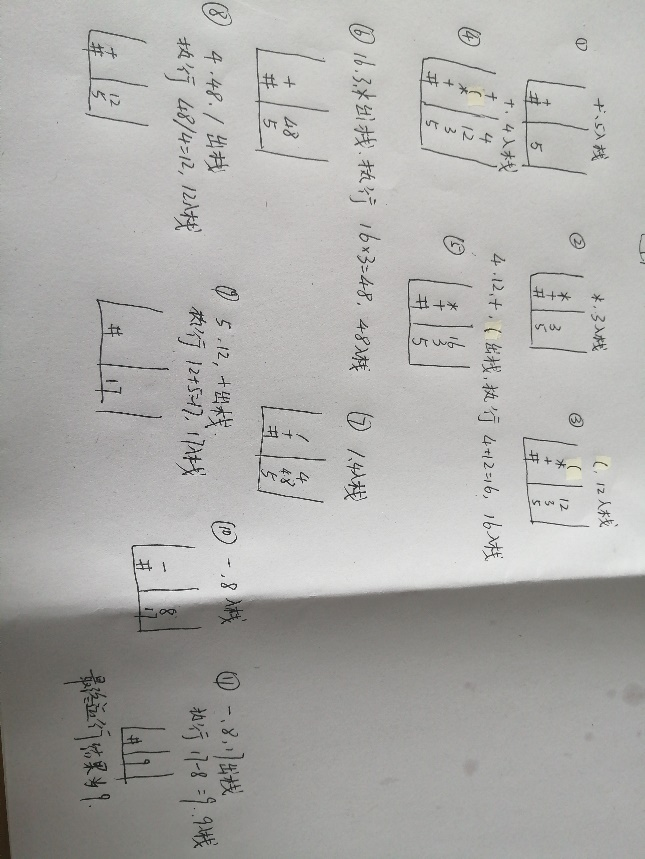 ①
+.5入栈
+
# 5
②
*.3入栈
* 3
+
# 5
③
(.12入栈
( 12
* 3
+
# 5
④
+.4入栈
+ 4
( 12
* 3
+
# 5
⑤
4.12.+.(出栈,执行 4+12=16, 16入栈
* 16
+ 3
# 5
⑥ 16.3.*出栈.执行 16×3=48. 48入栈
+ 48
# 5
⑦ /.4入栈
/ 4
+ 48
# 5
⑧ 4.48./出栈
执行 48/4=12, 12入栈
+ 12
# 5
⑨ 5.12,+出栈.
执行 12+5=17, 17入栈
# 17
⑩ -.8入栈
- 8
# 17
⑪ -.8,17出栈
执行 17-8=9.9入栈
# 9
最终运行结果为9.